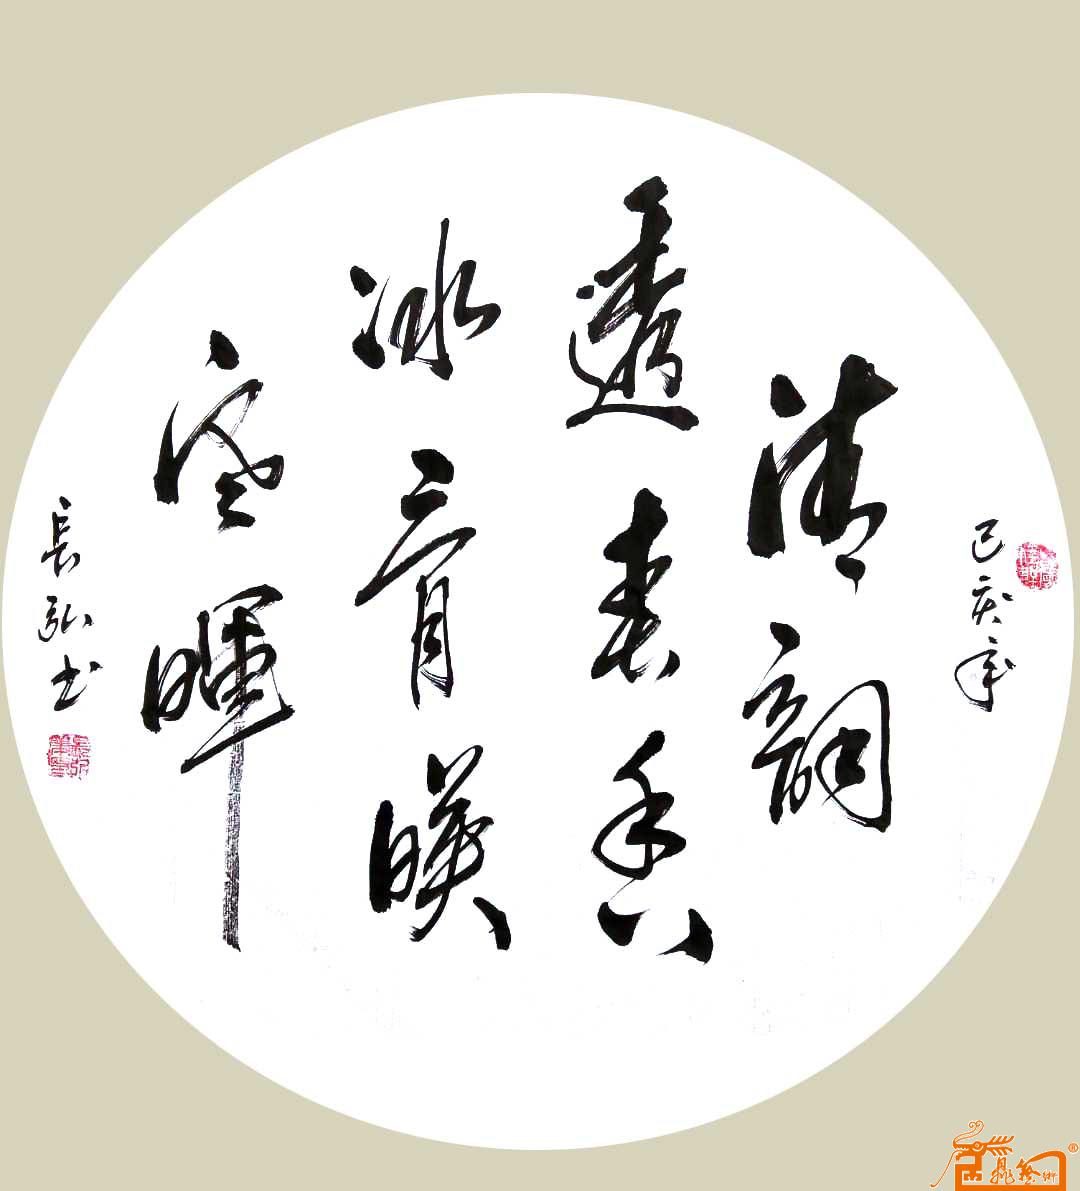 己亥年
清韵
透春香
冰骨映
寒暉
長弘书